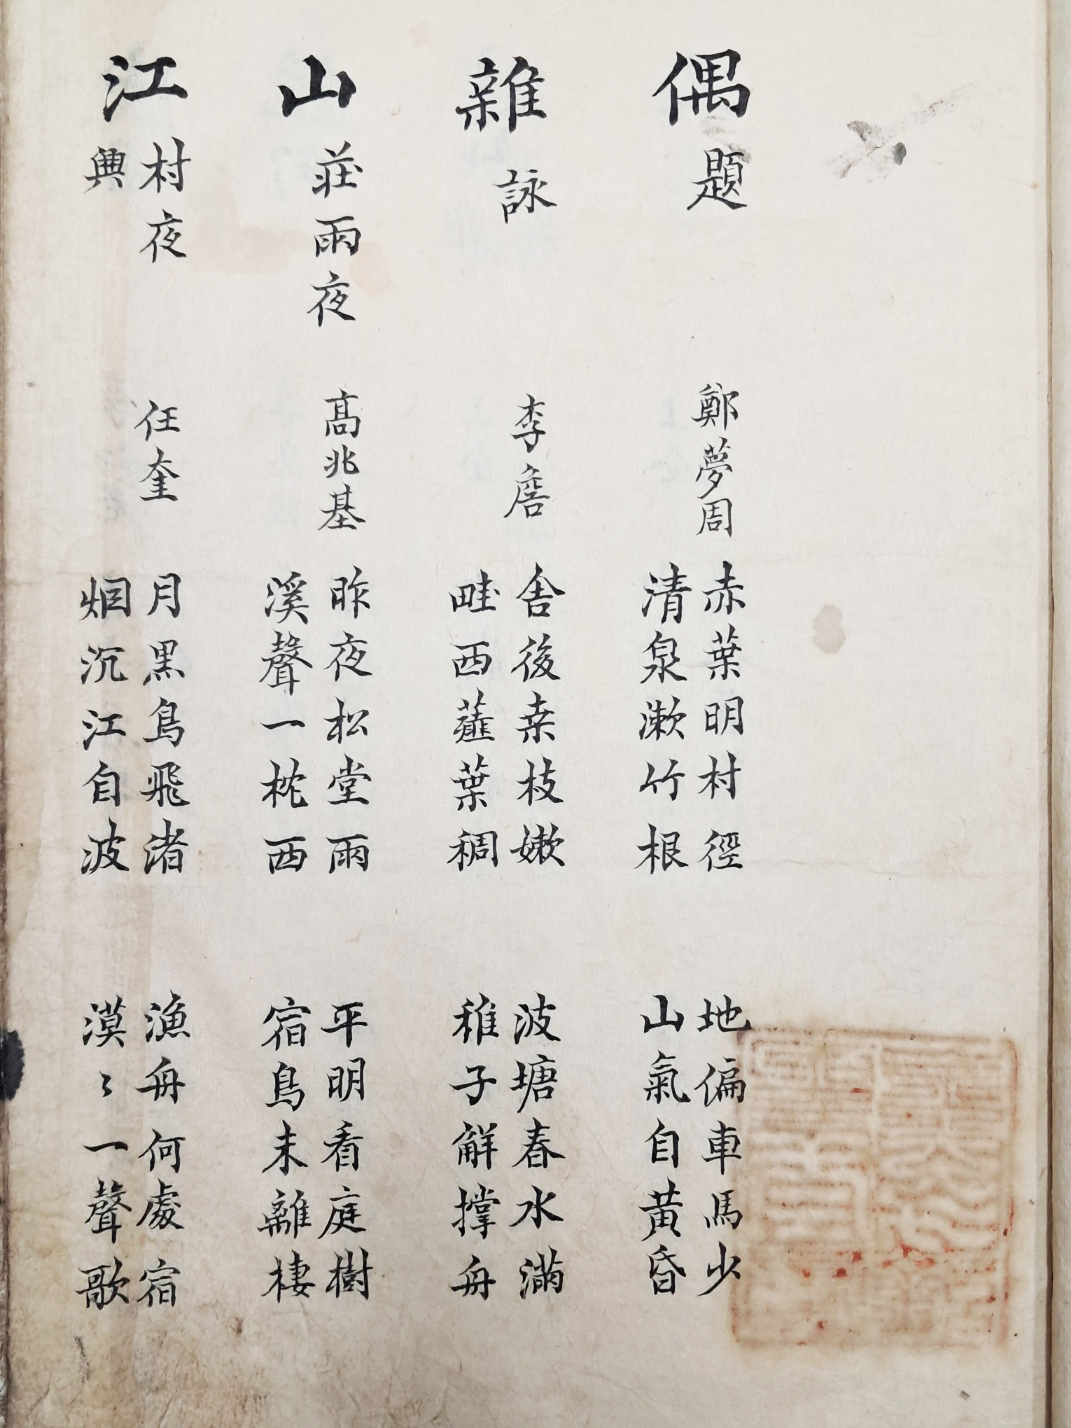 偶題
鄭夢周
赤葉明村徑
清泉漱竹根
地偏車馬少
山氣自黃昏
雜詠
李詹
舍後桒枝嫰
畦西薤葉稠
波塘春水滿
稚子解撑舟
山莊雨夜
髙兆基
昨夜松堂雨
溪聲一枕西
平明看庭樹
宿鳥未離棲
江村夜興
任奎
月黒鳥飛渚
烟沉江自波
漁舟何處宿
漠〻一聲歌